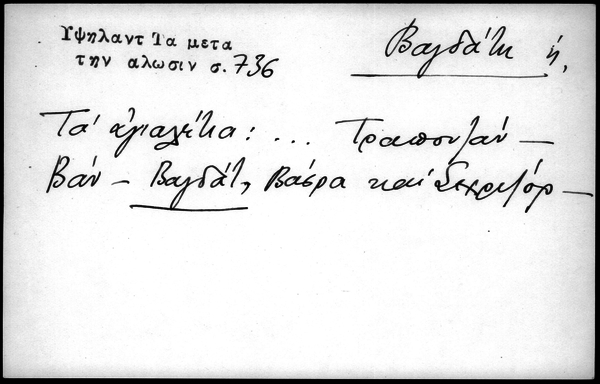 Υψηλαντ Τα μετα
την αλωσιν σ. 736
Βαγδάτη ἡ,
Τά ἐγιαλέτια: ... Τραπουζάν —
Βάν — Βαγδάτ, Βάσρα καί Σεχριζόρ —